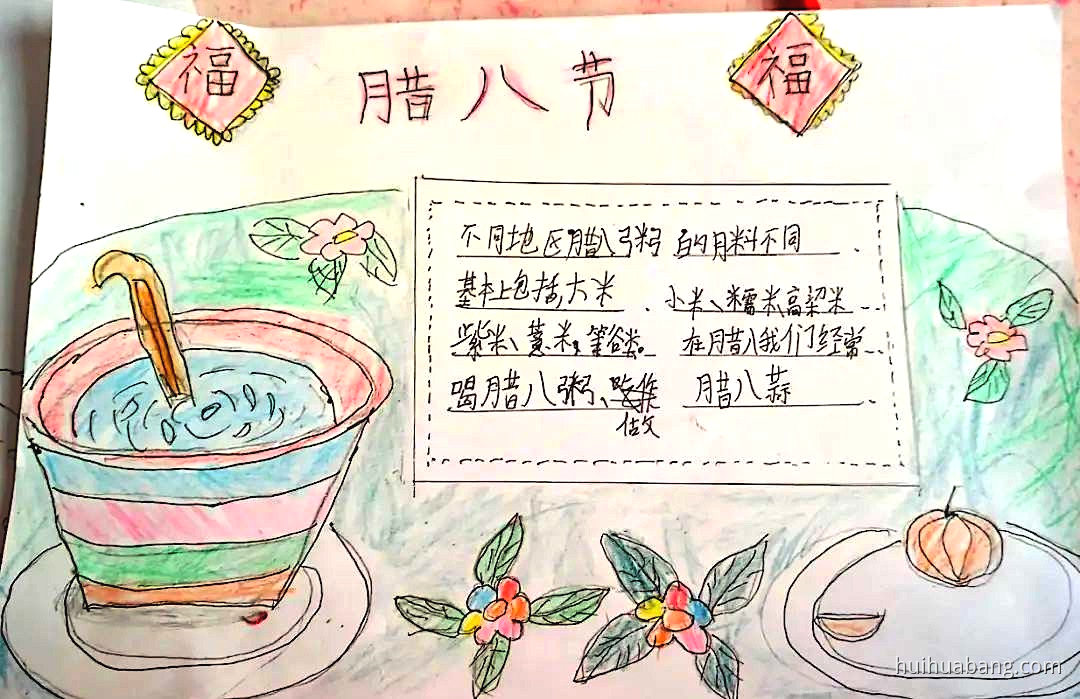 福 腊八节 福
不同地区腊八粥 的用料不同
基本上包括大米、小米、糯米、高粱米
紫米、薏米, 等谷类。在腊八我们经常
喝腊八粥、 腊八蒜
做
huihuabang.com